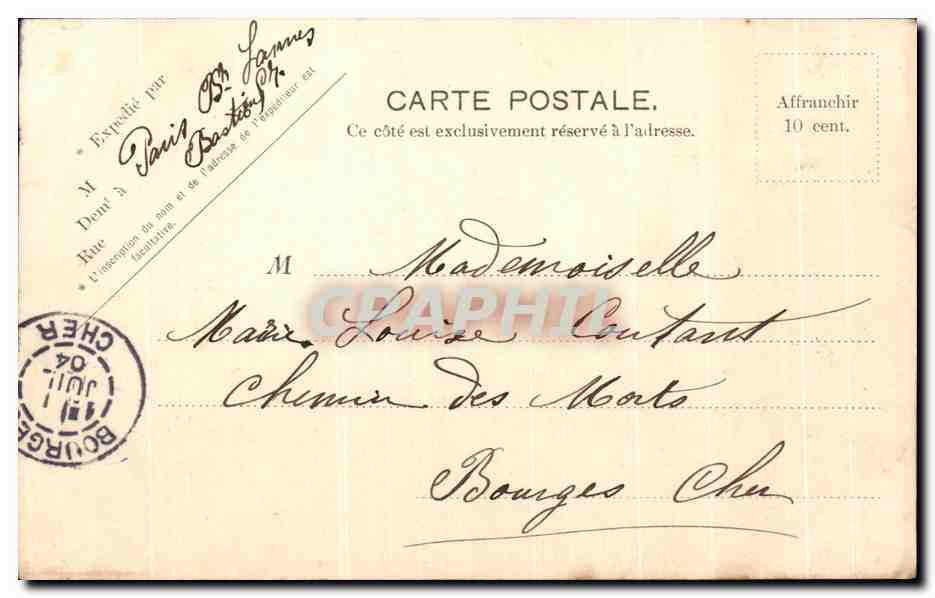 * Expédié par
M
Demt à Paris Bd Lannes
Rue Bastion 57.
* L'inscription du nom et de l'adresse de l'expéditeur est
facultative.
CARTE POSTALE.
Ce côté est exclusivement réservé à l'adresse.
Affranchir
10 cent.
M Mademoiselle
Marie Louise Coutant
Chemin des Morts
Bourges Cher
CPAPHIL
BOURGES
1
JUIL
04
CHER